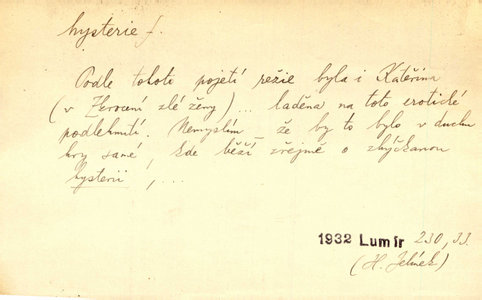 hysterie f.
Podle tohoto pojetí režie byla i Kateřina
(v Zkrocení zlé ženy)... laděna na toto erotické
podlehnutí. Nemyslím – že by to bylo v duchu
hry samé, kde běží zřejmě o zhýčkanou
hysterii, ...
1932 Lumír 230, 33.
(H. Jelínek)